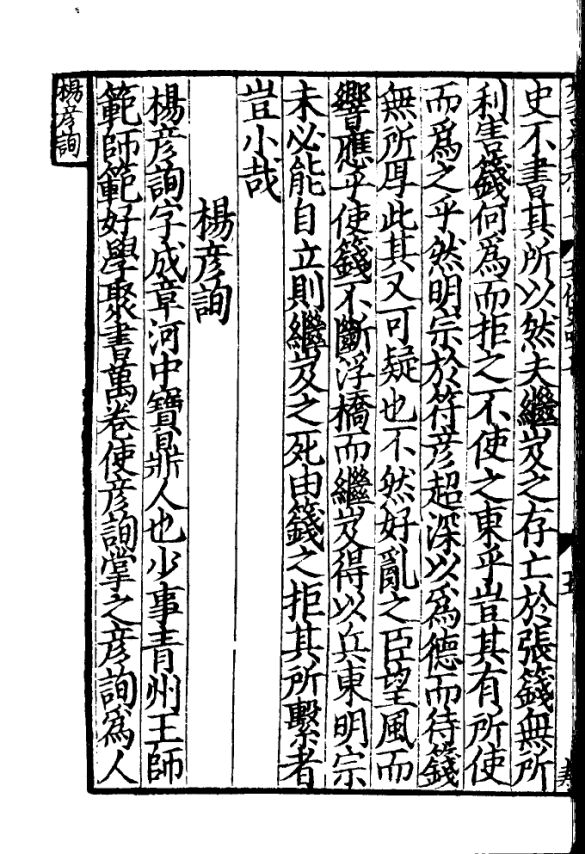 史不書其所以然夫繼岌之存亡於張籛無所
利害籛何爲而拒之不使之東乎豈其有所使
而爲之乎然明宗於符彦超深以爲德而待籛
無所厚此其又可疑也不然好亂之臣望風而
響應乎使籛不斷浮橋而繼岌得以兵東明宗
未必能自立則繼岌之死由籛之拒其所繫者
豈小哉
楊彦詢
楊彦詢字成章河中寶鼎人也少事青州王師
範師範好學聚書萬卷使彦詢掌之彦詢爲人
楊彦詢